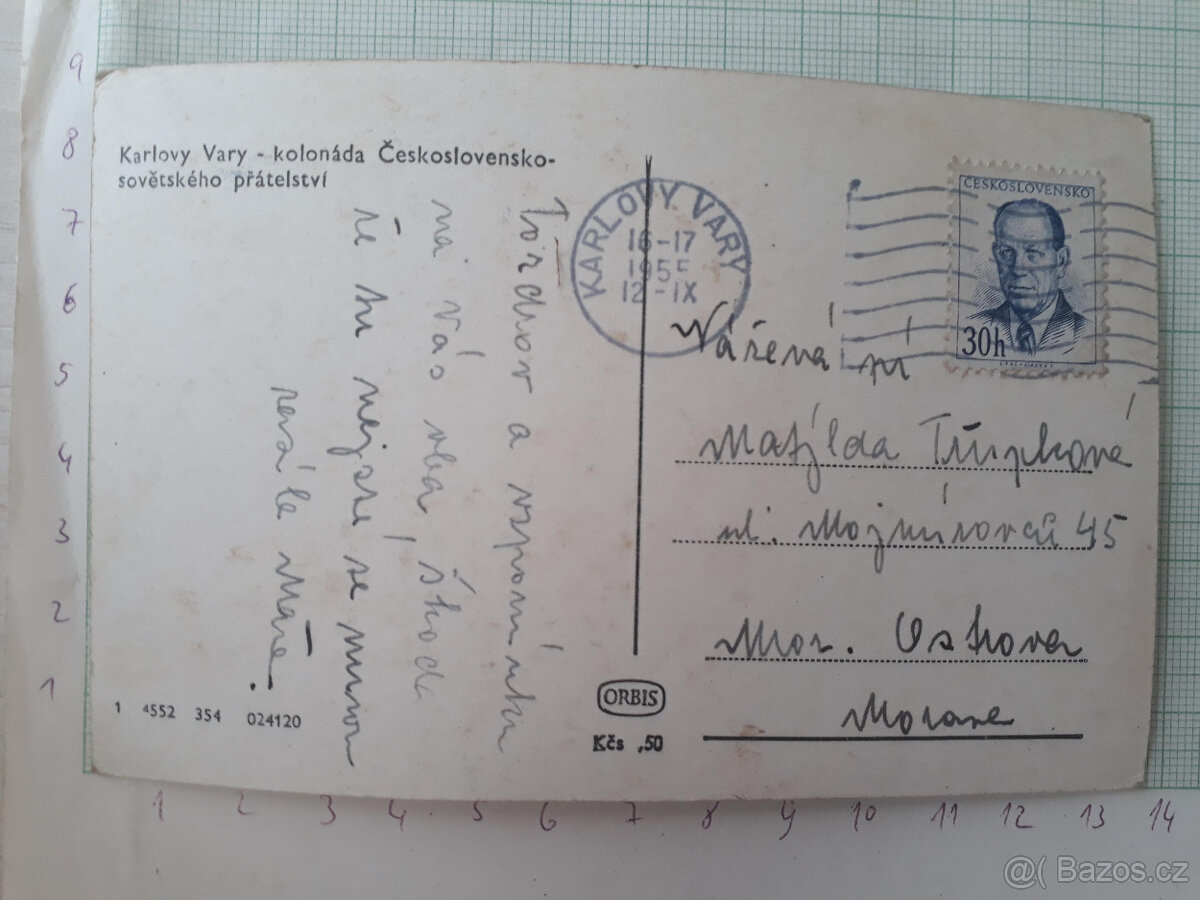 Karlovy Vary - kolonáda Československo-
sovětského přátelství
Pozdrav a vzpomínku
na Vás oba, škoda
že tu nejste se mnou
Máňa.
1 4552 354 024120
KARLOVY VARY
16-17
1955
12-IX
ČESKOSLOVENSKO
30h
Vážená pí
Matylda
ul. Mojmírovců 45
Mor. Ostrava
Morava
ORBIS
Kčs ,50
9
8
7
6
5
4
3
2
1
1 2 3 4 5 6 7 8 9 10 11 12 13 14
@( Bazos.cz